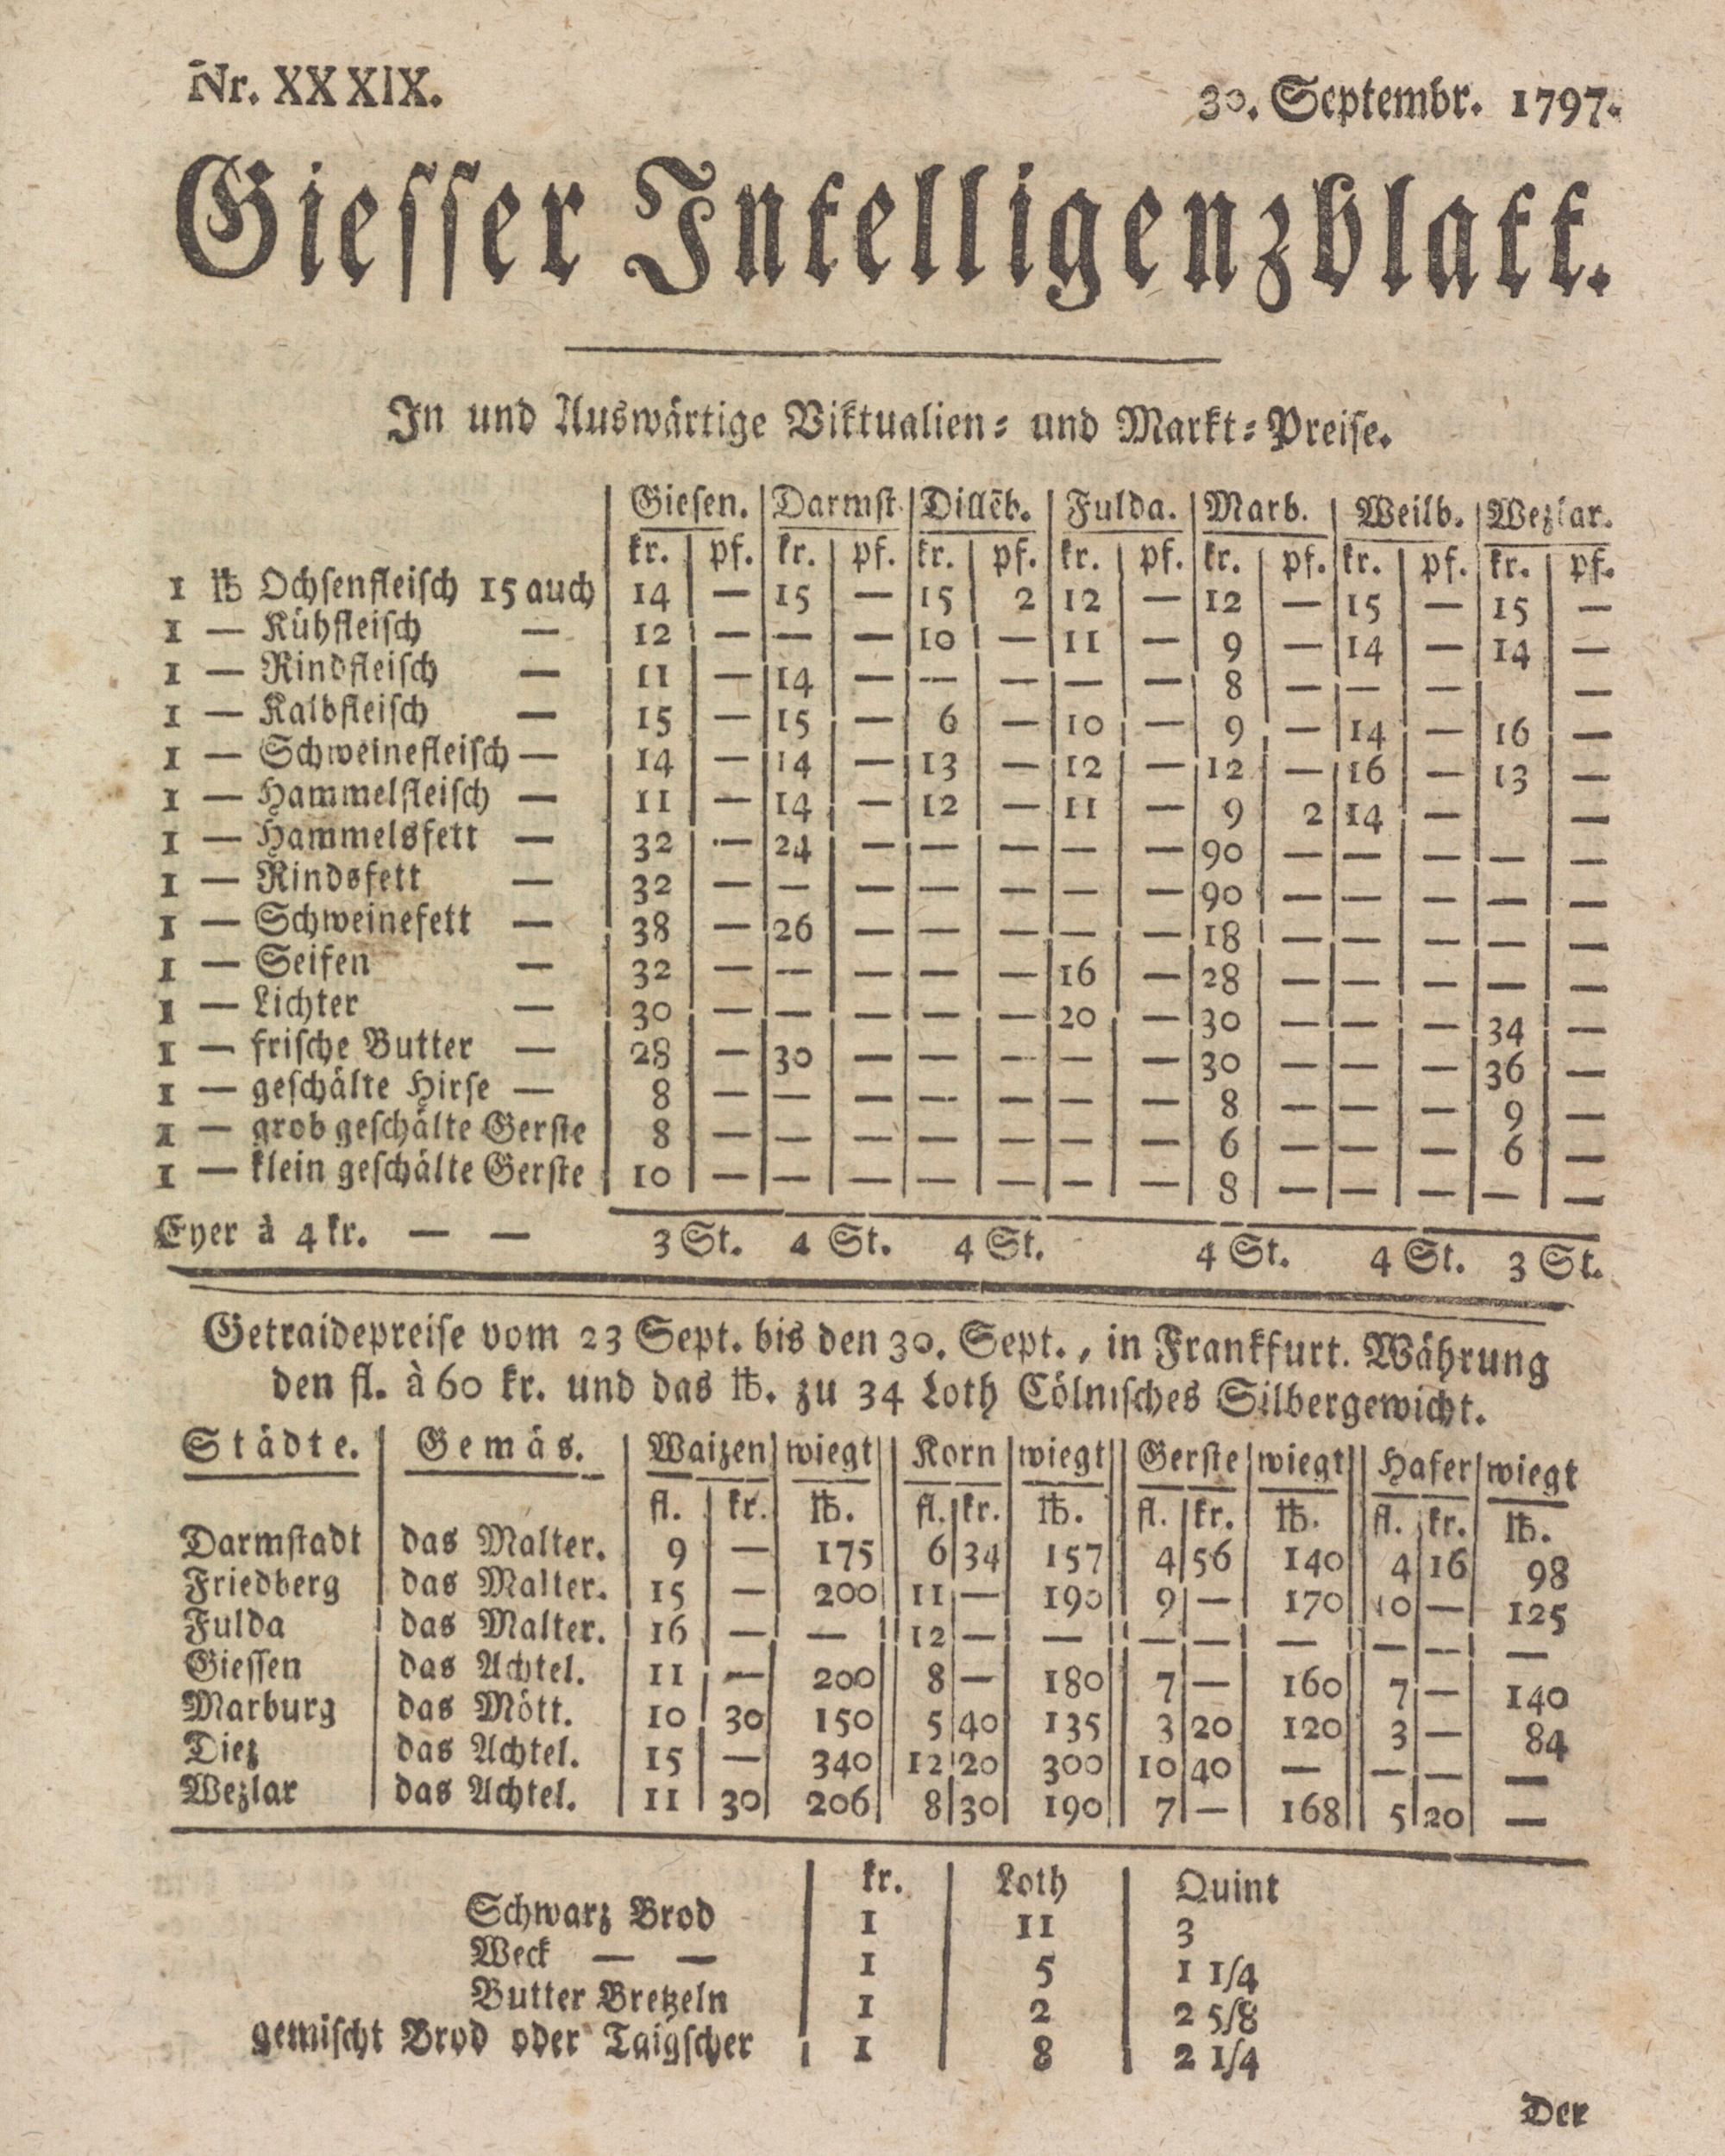 Nr. XXXIX.
30. Septembr. 1797.
Giesser Intelligenzblatt.
In und Auswärtige Viktualien= und Markt=Preise.
Giesen. Darmst Dillēb. Fulda. Marb. Weilb. Wezlar.
kr. pf. kr. pf. kr. pf. kr. pf. kr. pf. kr. pf. kr. pf.
1 ℔ Ochsenfleisch 15 auch 14 — 15 — 15 2 12 — 12 — 15 — 15 —
1 — Kühfleisch — 12 — — — 10 — 11 — 9 — 14 — 14 —
1 — Rindfleisch — 11 — 14 — — — — — 8 — — — —
1 — Kalbfleisch — 15 — 15 — 6 — 10 — 9 — 14 — 16 —
1 — Schweinefleisch — 14 — 14 — 13 — 12 — 12 — 16 — 13 —
1 — Hammelfleisch — 11 — 14 — 12 — 11 — 9 2 14 — —
1 — Hammelsfett — 32 — 24 — — — — — 90 — — — — —
1 — Rindsfett — 32 — — — — — — — 90 — — — — —
1 — Schweinefett — 38 — 26 — — — — — 18 — — — — —
1 — Seifen — 32 — — — — — 16 — 28 — — — — —
1 — Lichter — 30 — — — — — 20 — 30 — — — 34 —
1 — frische Butter — 28 — 30 — — — — — 30 — — — 36 —
1 — geschälte Hirse — 8 — — — — — — — 8 — — — 9 —
1 — grob geschälte Gerste 8 — — — — — — — 6 — — — 6 —
1 — klein geschälte Gerste 10 — — — — — — — 8 — — — — —
Eyer à 4 kr. — — 3 St. 4 St. 4 St. 4 St. 4 St. 3 St.
Getraidepreise vom 23 Sept. bis den 30. Sept., in Frankfurt. Währung
den fl. à 60 kr. und das ℔. zu 34 Loth Cölnisches Silbergewicht.
Städte. Gemäs. Waizen wiegt Korn wiegt Gerste wiegt Hafer wiegt
fl. kr. ℔. fl. kr. ℔. fl. kr. ℔. fl. kr. ℔.
Darmstadt das Malter. 9 — 175 6 34 157 4 56 140 4 16 98
Friedberg das Malter. 15 — 200 11 — 190 9 — 170 10 — 125
Fulda das Malter. 16 — — 12 — — — — — — — —
Giessen das Achtel. 11 — 200 8 — 180 7 — 160 7 — 140
Marburg das Mött. 10 30 150 5 40 135 3 20 120 3 — 84
Diez das Achtel. 15 — 340 12 20 300 10 40 — — — —
Wezlar das Achtel. 11 30 206 8 30 190 7 — 168 5 20 —
kr. Loth Quint
Schwarz Brod 1 11 3
Weck — — 1 5 1 1/4
Butter Bretzeln 1 2 2 5/8
gemischt Brod oder Taigscher 1 8 2 1/4
Der